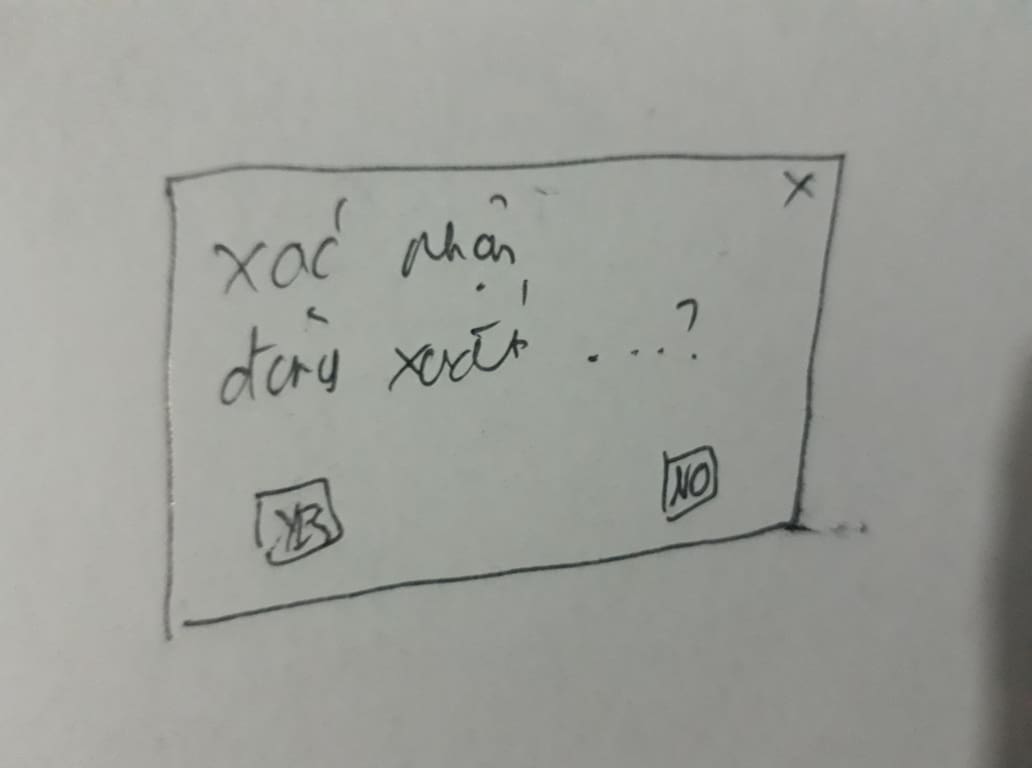 X
xác nhận
đăng xuất ....?
YES
NO